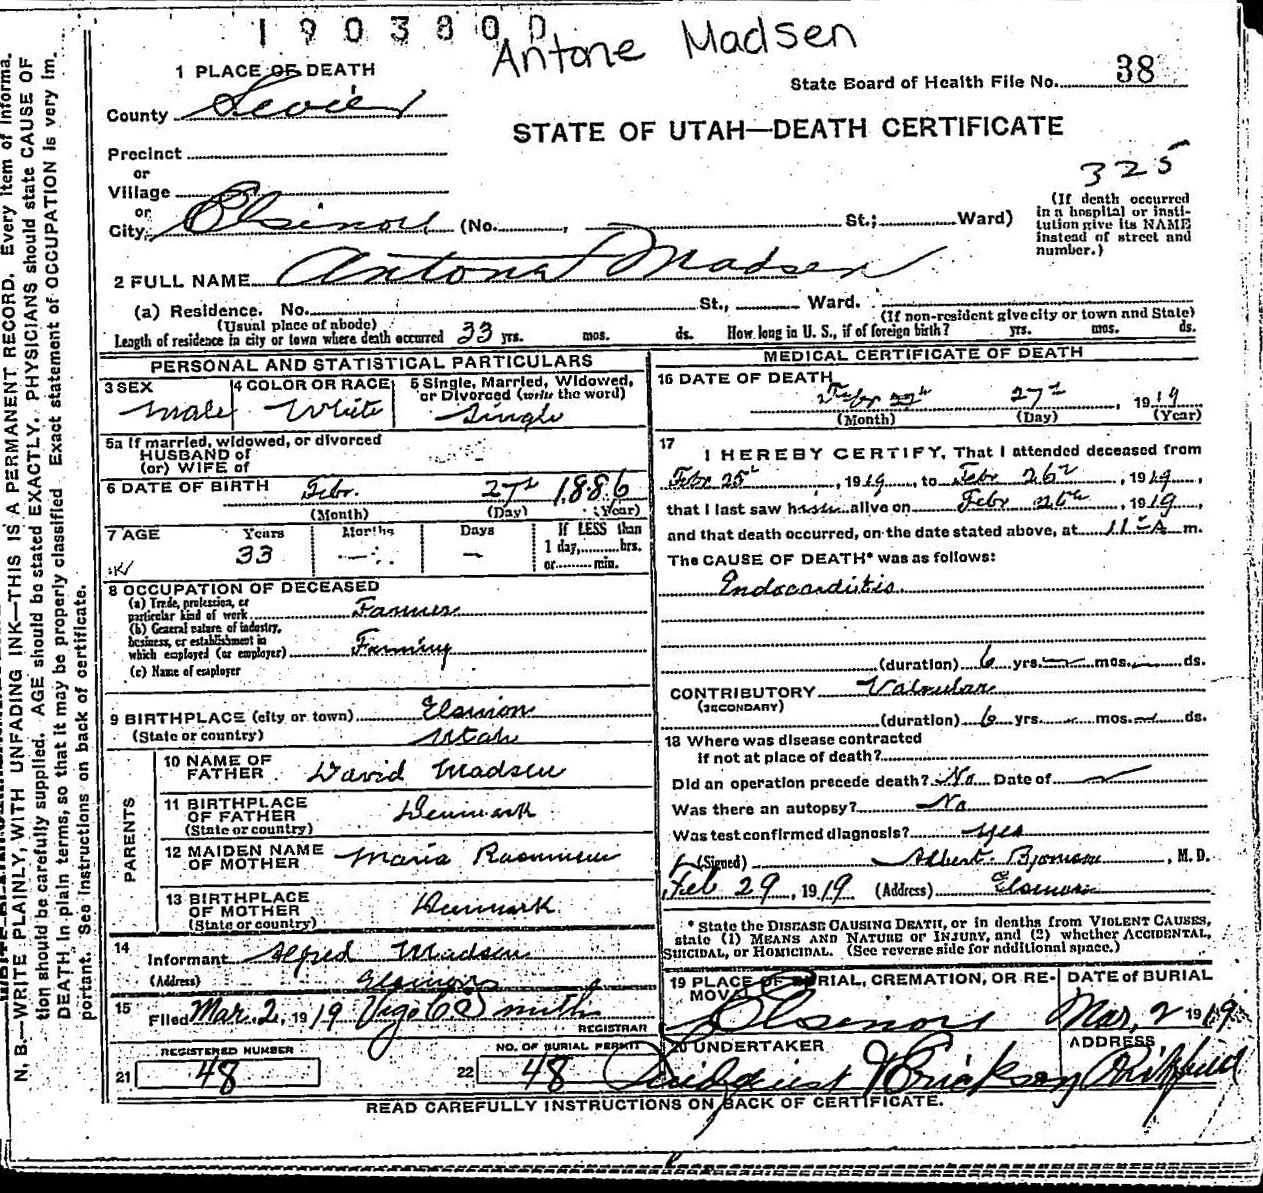 1903800
Antone Madsen
1 PLACE OF DEATH
State Board of Health File No. 38
County Sevier
STATE OF UTAH—DEATH CERTIFICATE
Precinct
or
325
Village
or
City Elsinore (No. , St.; Ward)
(If death occurred
in a hospital or insti-
tution give its NAME
instead of street and
number.)
2 FULL NAME Antone Madsen
(a) Residence. No. St., Ward.
(Usual place of abode)
(If non-resident give city or town and State)
Length of residence in city or town where death occurred 33 yrs. mos. ds. How long in U. S., if of foreign birth? yrs. mos. ds.
PERSONAL AND STATISTICAL PARTICULARS
3 SEX
Male
4 COLOR OR RACE
White
5 Single, Married, Widowed,
or Divorced (write the word)
Single
5a If married, widowed, or divorced
HUSBAND of
(or) WIFE of
6 DATE OF BIRTH Febr. 27th 1886
(Month) (Day) (Year)
7 AGE Years Months Days If LESS than
33 — — 1 day, hrs.
or min.
8 OCCUPATION OF DECEASED
(a) Trade, profession, or
particular kind of work Farmer
(b) General nature of industry,
business, or establishment in
which employed (or employer) Farming
(c) Name of employer
9 BIRTHPLACE (city or town) Elsinore
(State or country) Utah
PARENTS
10 NAME OF
FATHER David Madsen
11 BIRTHPLACE
OF FATHER Denmark
(State or country)
12 MAIDEN NAME
OF MOTHER Maria Rasmussen
13 BIRTHPLACE
OF MOTHER Denmark
(State or country)
14
Informant Alfred Madsen
(Address) Elsinore
15
Filed Mar. 2, 1919 Vigo C Smith
REGISTRAR
REGISTERED NUMBER
21 48
NO. OF BURIAL PERMIT
22 48
MEDICAL CERTIFICATE OF DEATH
16 DATE OF DEATH
Febr 27th 27th , 1919
(Month) (Day) (Year)
17 I HEREBY CERTIFY, That I attended deceased from
Febr 25th , 1919, to Febr 26th , 1919,
that I last saw him alive on Febr 26th , 1919,
and that death occurred, on the date stated above, at 11 A m.
The CAUSE OF DEATH* was as follows:
Endocarditis
(duration) 6 yrs. — mos. — ds.
CONTRIBUTORY Valvular
(SECONDARY)
(duration) 6 yrs. — mos. — ds.
18 Where was disease contracted
if not at place of death?
Did an operation precede death? No Date of
Was there an autopsy? No
Was test confirmed diagnosis? yes
(Signed) Albert , M. D.
Feb 29, 1919 (Address) Elsinore
* State the DISEASE CAUSING DEATH, or in deaths from VIOLENT CAUSES,
state (1) MEANS AND NATURE OF INJURY, and (2) whether ACCIDENTAL,
SUICIDAL, OR HOMICIDAL. (See reverse side for additional space.)
19 PLACE OF BURIAL, CREMATION, OR RE-
MOVAL
Elsinore
DATE of BURIAL
Mar, 2 1919
20 UNDERTAKER
Erickson
ADDRESS
Richfield
READ CAREFULLY INSTRUCTIONS ON BACK OF CERTIFICATE.
N. B.—WRITE PLAINLY, WITH UNFADING INK—THIS IS A PERMANENT RECORD. Every item of informa-
tion should be carefully supplied. AGE should be stated EXACTLY. PHYSICIANS should state CAUSE OF
DEATH in plain terms, so that it may be properly classified. Exact statement of OCCUPATION is very im-
portant. See instructions on back of certificate.